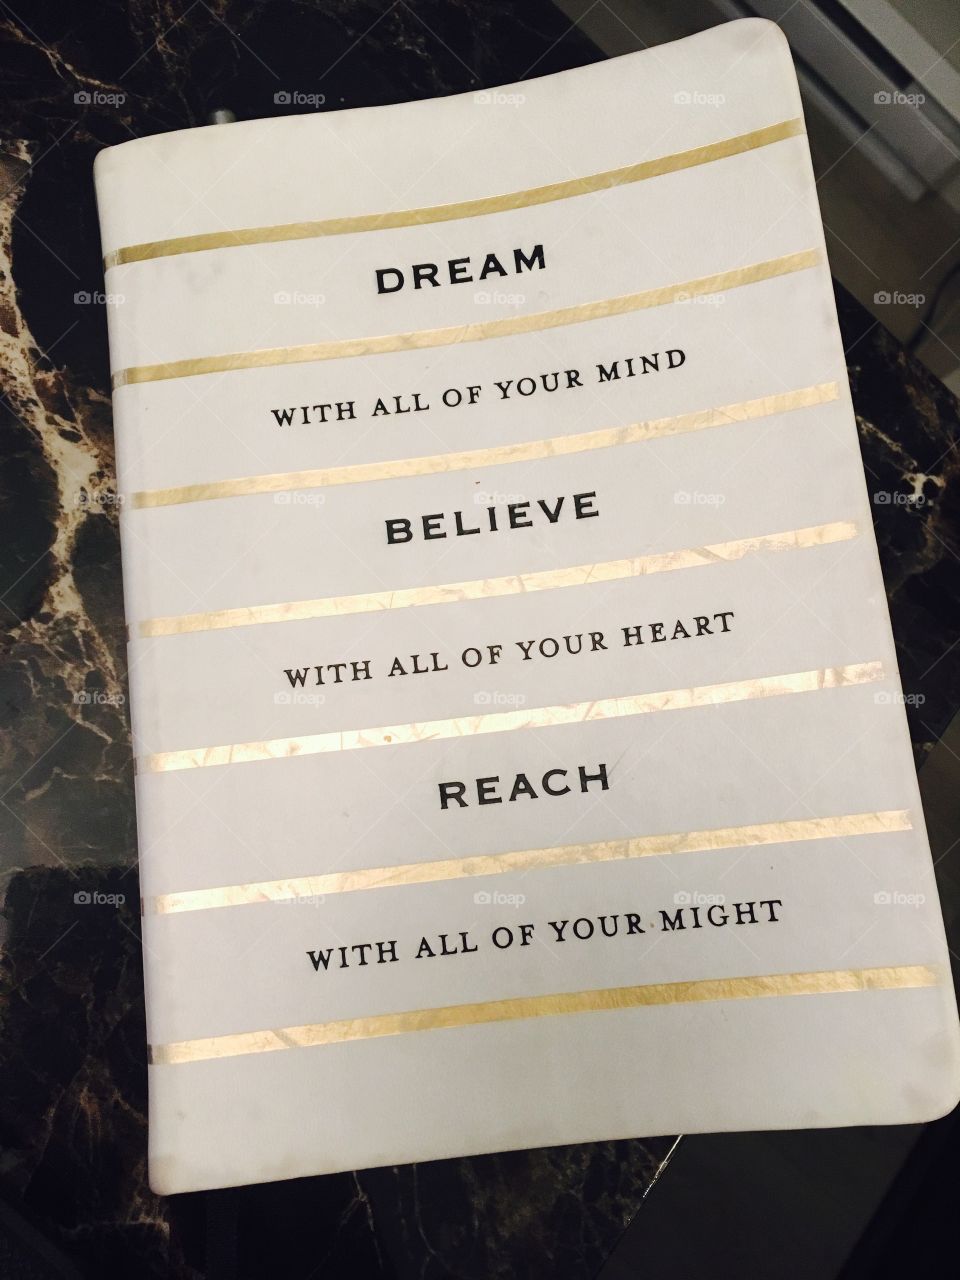 DREAM
WITH ALL OF YOUR MIND
BELIEVE
WITH ALL OF YOUR HEART
REACH
WITH ALL OF YOUR MIGHT
foap foap foap foap foap
foap foap foap foap foap
foap foap foap foap foap
foap foap foap foap foap
foap foap foap foap foap